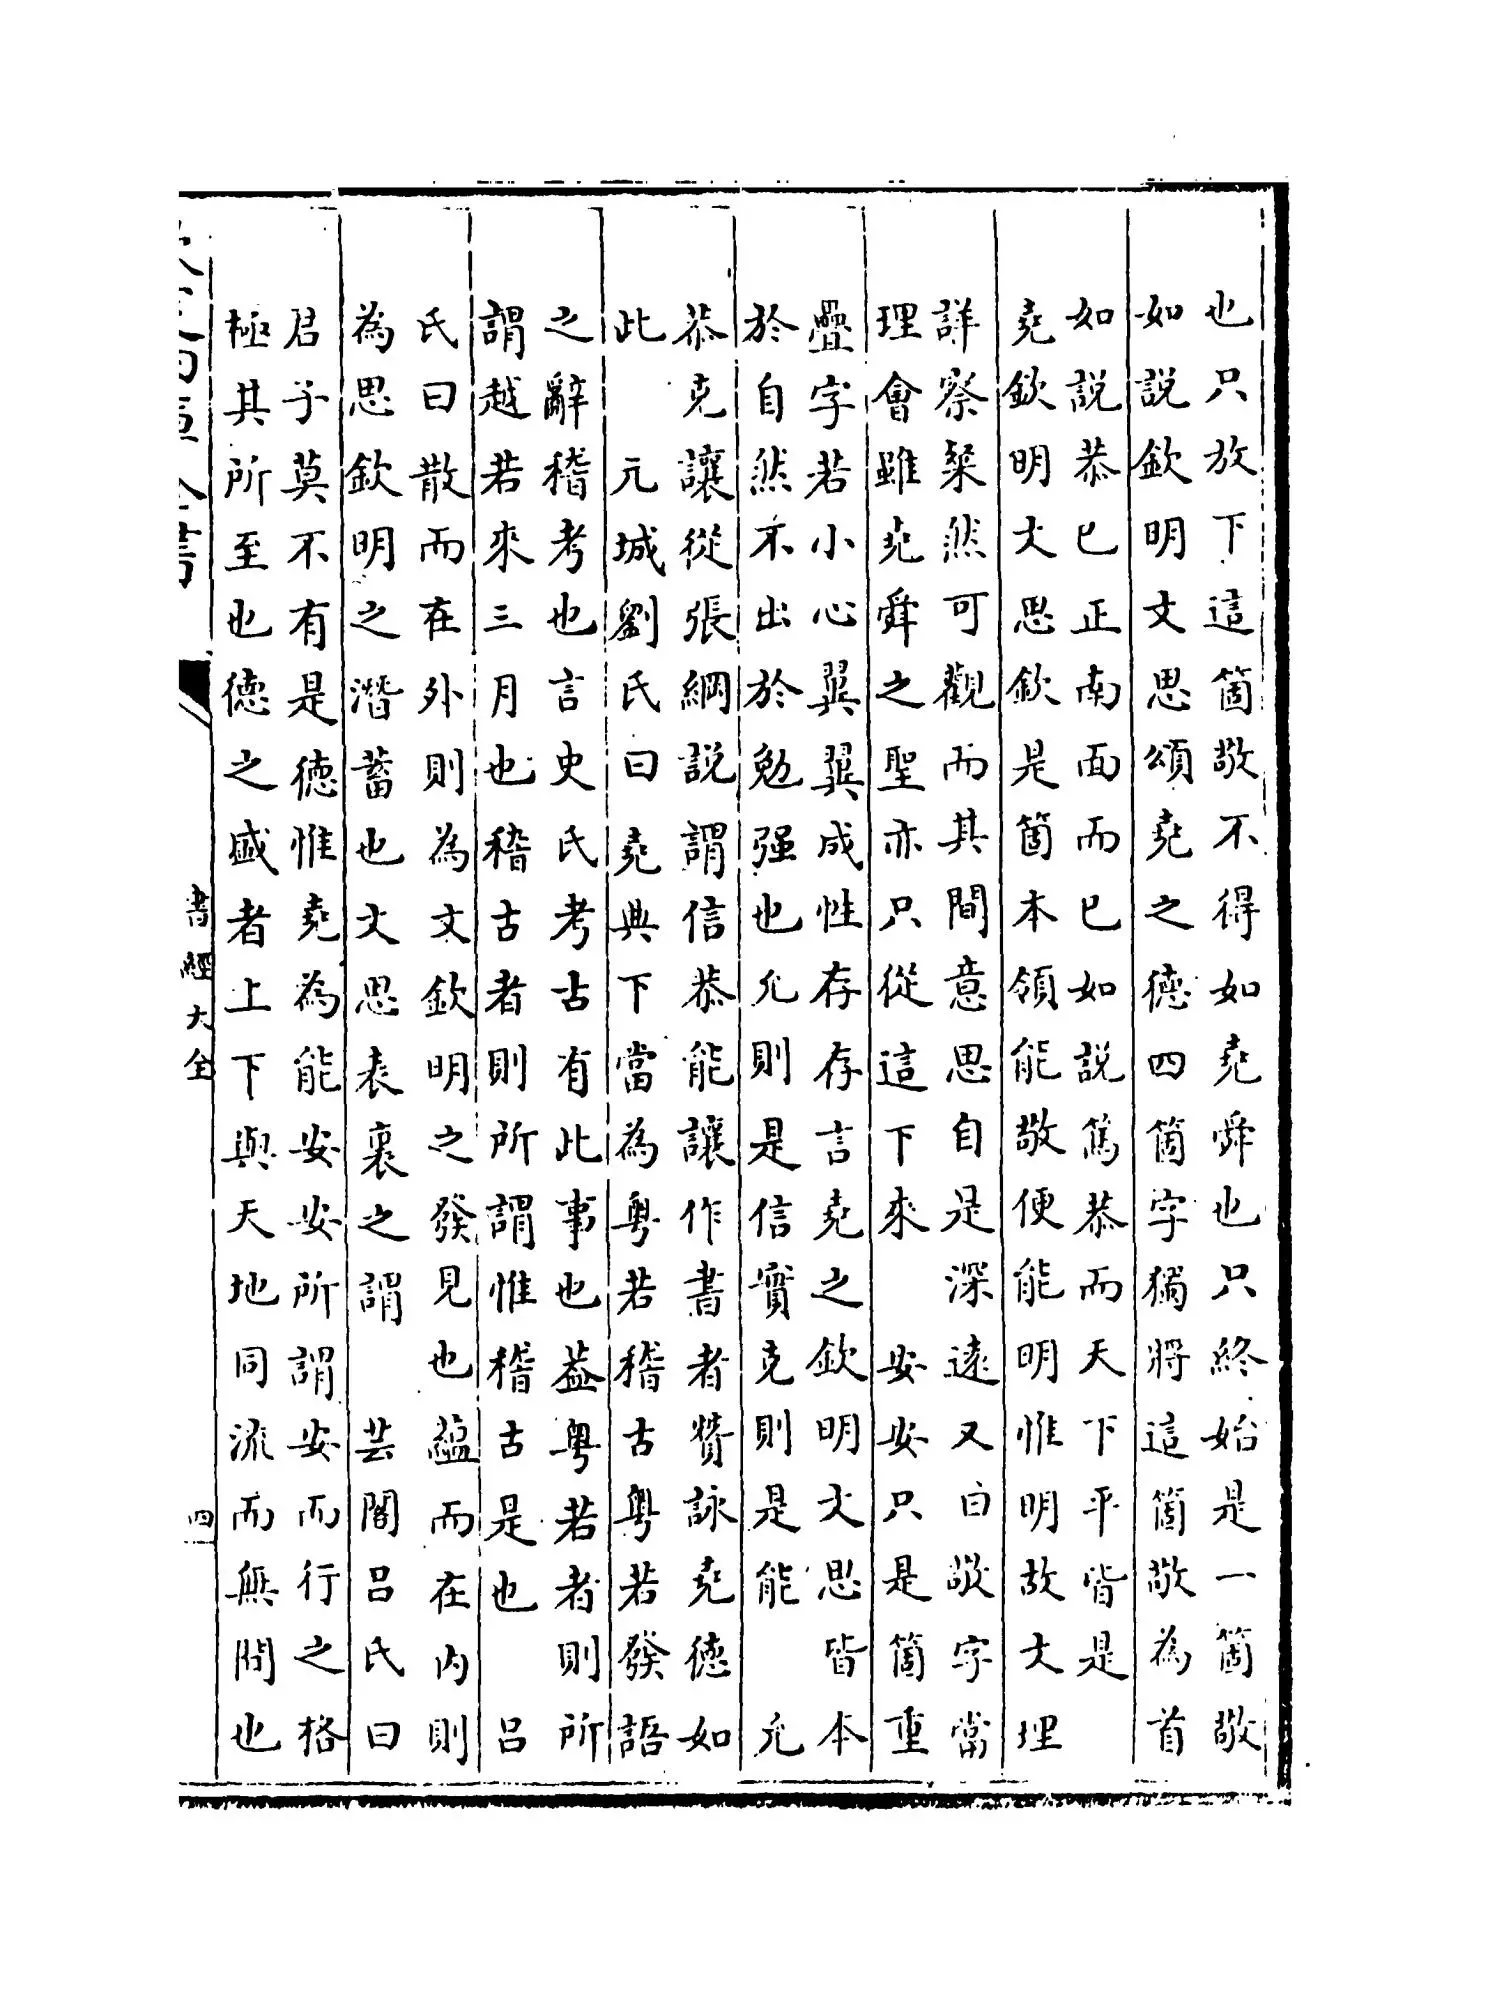 也只放下這箇敬不得如堯舜也只終始是一箇敬
如說欽明文思頌堯之德四箇字獨將這箇敬為首
如說恭已正南面而已如說篤恭而天下平皆是
堯欽明文思欽是箇本領能敬便能明惟明故文理
詳察粲然可觀而其間意思自是深遠又曰敬字當
理會雖堯舜之聖亦只從這下來 安安只是箇重
疊字若小心翼翼成性存存言堯之欽明文思皆本
於自然不出於勉强也允則是信實克則是能 允
恭克讓從張綱說謂信恭能讓作書者贊詠堯德如
此 元城劉氏曰堯典下當為粤若稽古粤若發語
之辭稽考也言史氏考古有此事也葢粤若者則所
謂越若來三月也稽古者則所謂惟稽古是也 呂
氏曰散而在外則為文欽明之發見也蘊而在內則
為思欽明之潛蓄也文思表裏之謂 芸閣呂氏曰
君子莫不有是德惟堯為能安安所謂安而行之格
極其所至也德之盛者上下與天地同流而無間也
書經大全
四